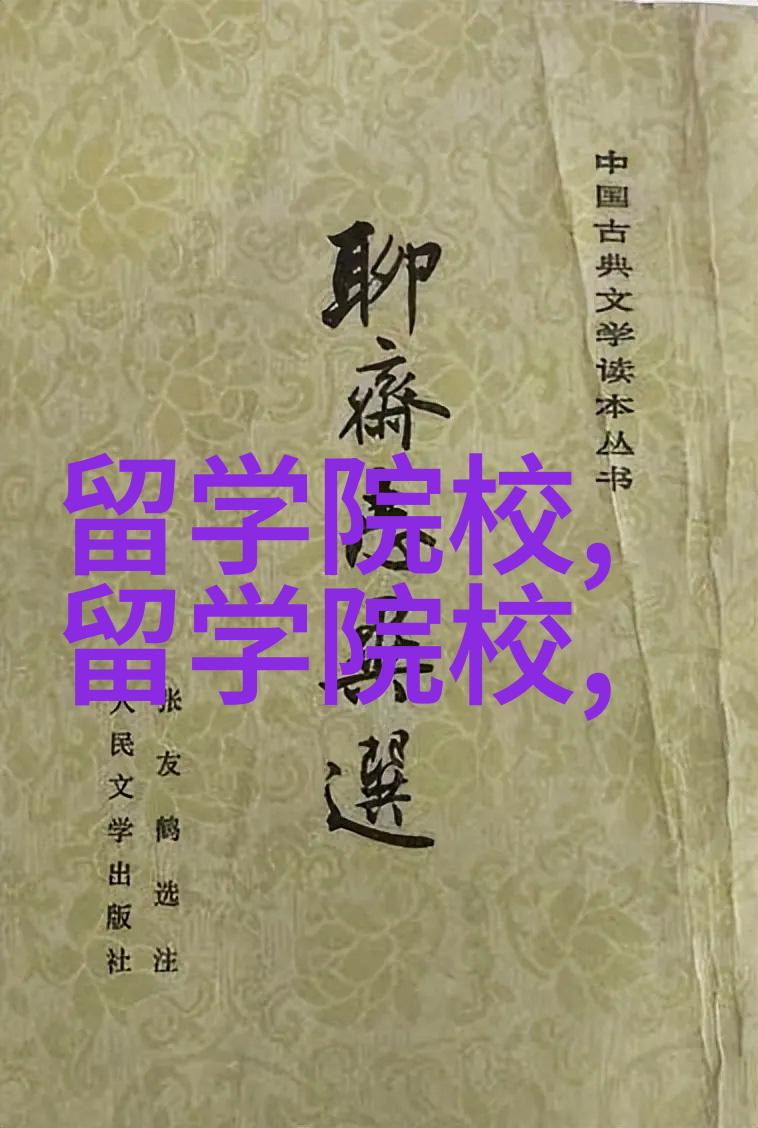 中国古典文学读本丛书
聊齋志異選
张友鹤选注
人民文学出版社
留学院校,
留学院校,